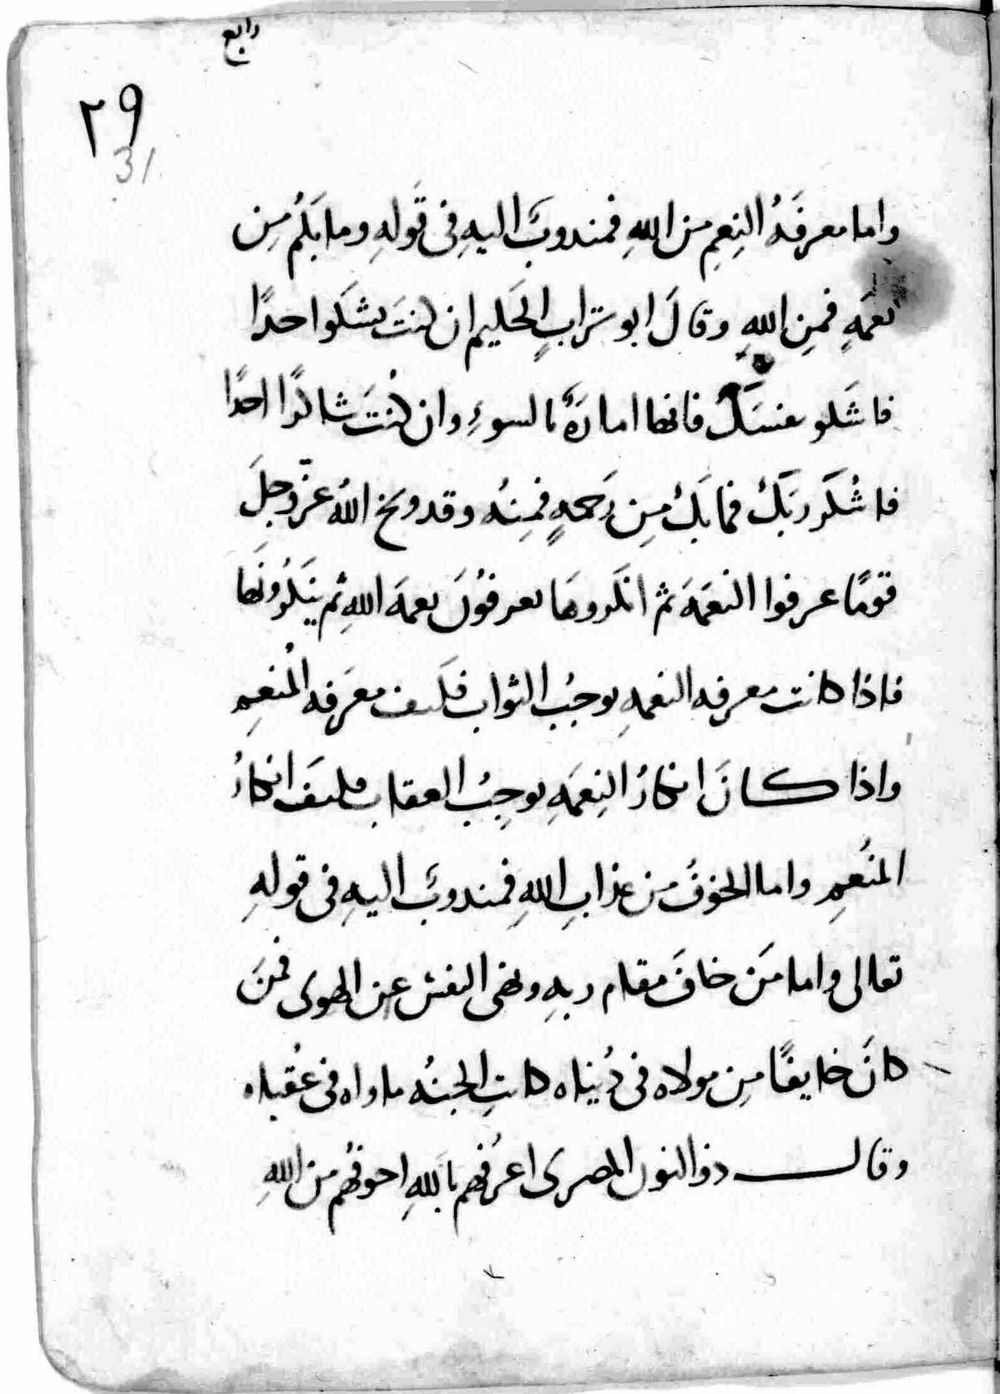 رابع
٢٩
31
واما معرفَهُ النِعمِ من اللهِ فمندوبٌ اليهِ فى قَولهِ وما بَكُم مِن
نعمَهٍ فمِن اللهِ وقالَ ابو ترابٍ الحَليم ان كنتَ تشكوا احدًا
فاشكو نفسَكَ فانها امارَهٌ بالسوءِ وان كُنتَ شاكرًا احدًا
فاشُكَر ربَكَ فما بَكَ مِن رَحمهٍ فمِنهُ وقد وبخ اللهُ عزّ وجلَ
قومًا عرفوا النعمَهَ ثم انكَروهَا يعرفوُنَ نعمهَ اللهِ ثم ينَكرُونَها
فاذا كانت معرفه النعمهِ توجبُ الثواب فكَيف معَرفه المُنعِمِ
واذا كانَ انكارُ النِعمَهِ يوجِبُ العقاب فكيفَ انكارُ
المنُعمِ واما الخوفُ من عذابِ اللهِ فمندوبٌ اليهِ فى قولهِ
تعالى واما مَن خافَ مقام ربهِ ونهى النفس عن الهوى فمَن
كانَ خايفًا مِن مولاه فى دُنياه كانتِ الجنهُ ماواه فى عُقباه
وقال ذو النون المصرى اعرُفهم باللهِ اخوفهُم من اللهِ